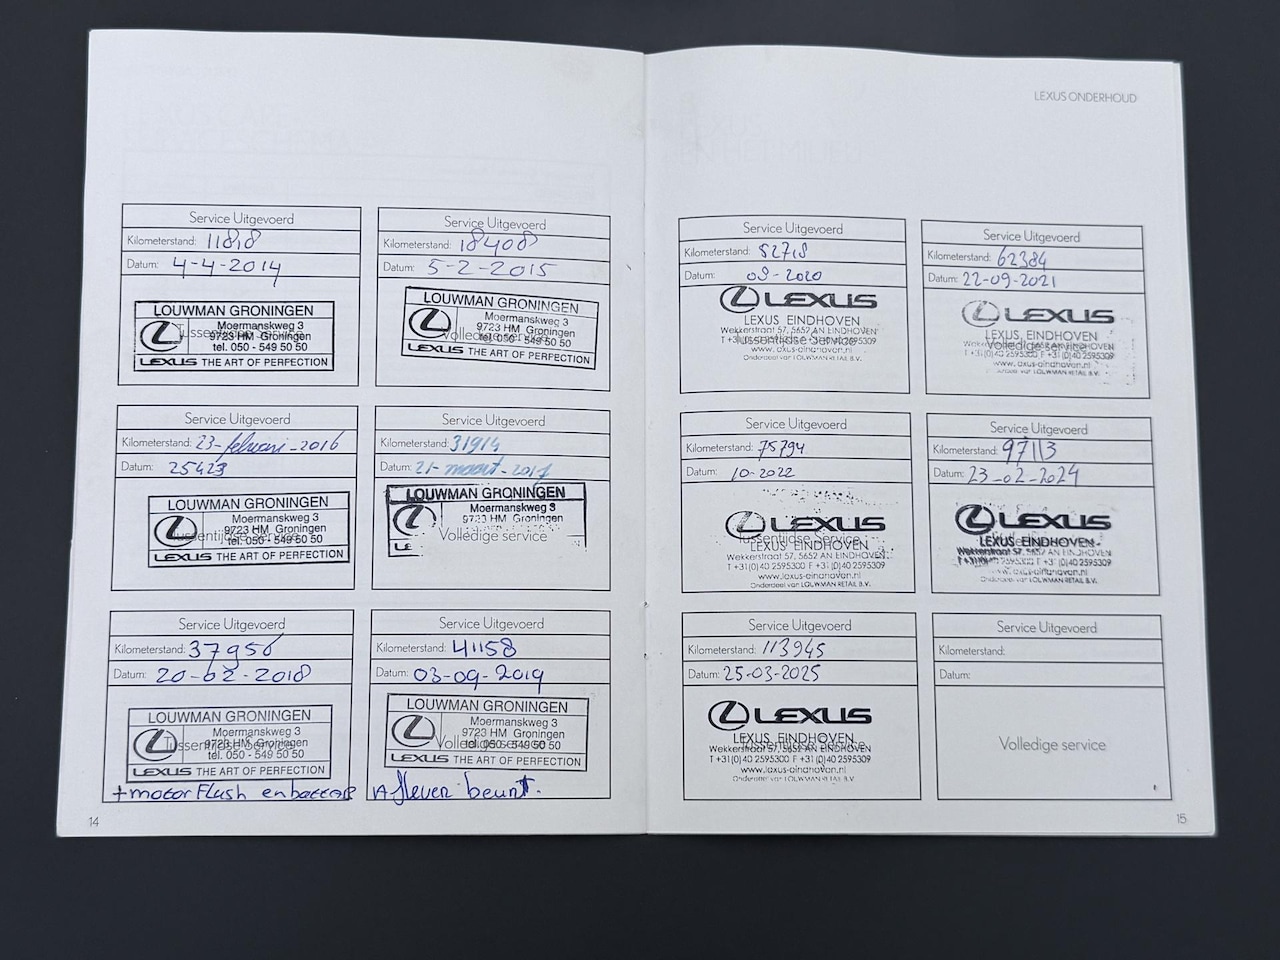 LEXUS ONDERHOUD
Service Uitgevoerd
Kilometerstand: 11818
Datum: 4-4-2014
LOUWMAN GRONINGEN
Tussentijdse service
Moermanskweg 3
9723 HM Groningen
tel. 050 - 549 50 50
LEXUS THE ART OF PERFECTION
Service Uitgevoerd
Kilometerstand: 18408
Datum: 5-2-2015
LOUWMAN GRONINGEN
Moermanskweg 3
9723 HM Groningen
Volledige service
tel. 050 - 549 50 50
LEXUS THE ART OF PERFECTION
Service Uitgevoerd
Kilometerstand: 23-februari-2016
Datum: 25423
LOUWMAN GRONINGEN
Moermanskweg 3
9723 HM Groningen
Tussentijdse Service
tel. 050 - 549 50 50
LEXUS THE ART OF PERFECTION
Service Uitgevoerd
Kilometerstand: 31914
Datum: 21-maart-2017
LOUWMAN GRONINGEN
Moermanskweg 3
9723 HM Groningen
Volledige service
Service Uitgevoerd
Kilometerstand: 37956
Datum: 20-02-2018
LOUWMAN GRONINGEN
Moermanskweg 3
Tussentijdse Service
9723 HM Groningen
tel. 050 - 549 50 50
LEXUS THE ART OF PERFECTION
+motorFlush en
Service Uitgevoerd
Kilometerstand: 41158
Datum: 03-09-2019
LOUWMAN GRONINGEN
Moermanskweg 3
9723 HM Groningen
Volledige service
tel. 050 - 549 50 50
LEXUS THE ART OF PERFECTION
Aflever beurt.
14
Service Uitgevoerd
Kilometerstand: 52718
Datum: 09-2020
LEXUS
LEXUS EINDHOVEN
Wekkerstraat 57, 5652 AN EINDHOVEN
Tussentijdse Service
www.lexus-eindhoven.nl
Onderdeel van LOUWMAN RETAIL B.V.
Service Uitgevoerd
Kilometerstand: 62384
Datum: 22-09-2021
LEXUS
LEXUS EINDHOVEN
Volledige service
T +31(0)40 2595300 F +31(0)40 2595309
www.lexus-eindhoven.nl
Onderdeel van LOUWMAN RETAIL B.V.
Service Uitgevoerd
Kilometerstand: 75794
Datum: 10-2022
LEXUS
Tussentijdse Service
LEXUS EINDHOVEN
Wekkerstraat 57, 5652 AN EINDHOVEN
T +31(0)40 2595300 F +31(0)40 2595309
www.lexus-eindhoven.nl
Onderdeel van LOUWMAN RETAIL B.V.
Service Uitgevoerd
Kilometerstand: 97113
Datum: 23-02-2024
LEXUS
LEXUS EINDHOVEN
Wekkerstraat 57, 5652 AN EINDHOVEN
T +31(0)40 2595300 F +31(0)40 2595309
www.lexus-eindhoven.nl
Onderdeel van LOUWMAN RETAIL B.V.
Service Uitgevoerd
Kilometerstand: 113945
Datum: 25-03-2025
LEXUS
LEXUS EINDHOVEN
Wekkerstraat 57, 5652 AN EINDHOVEN
Tussentijdse Service
T +31(0)40 2595300 F +31(0)40 2595309
www.lexus-eindhoven.nl
Onderdeel van LOUWMAN RETAIL B.V.
Service Uitgevoerd
Kilometerstand:
Datum:
Volledige service
15